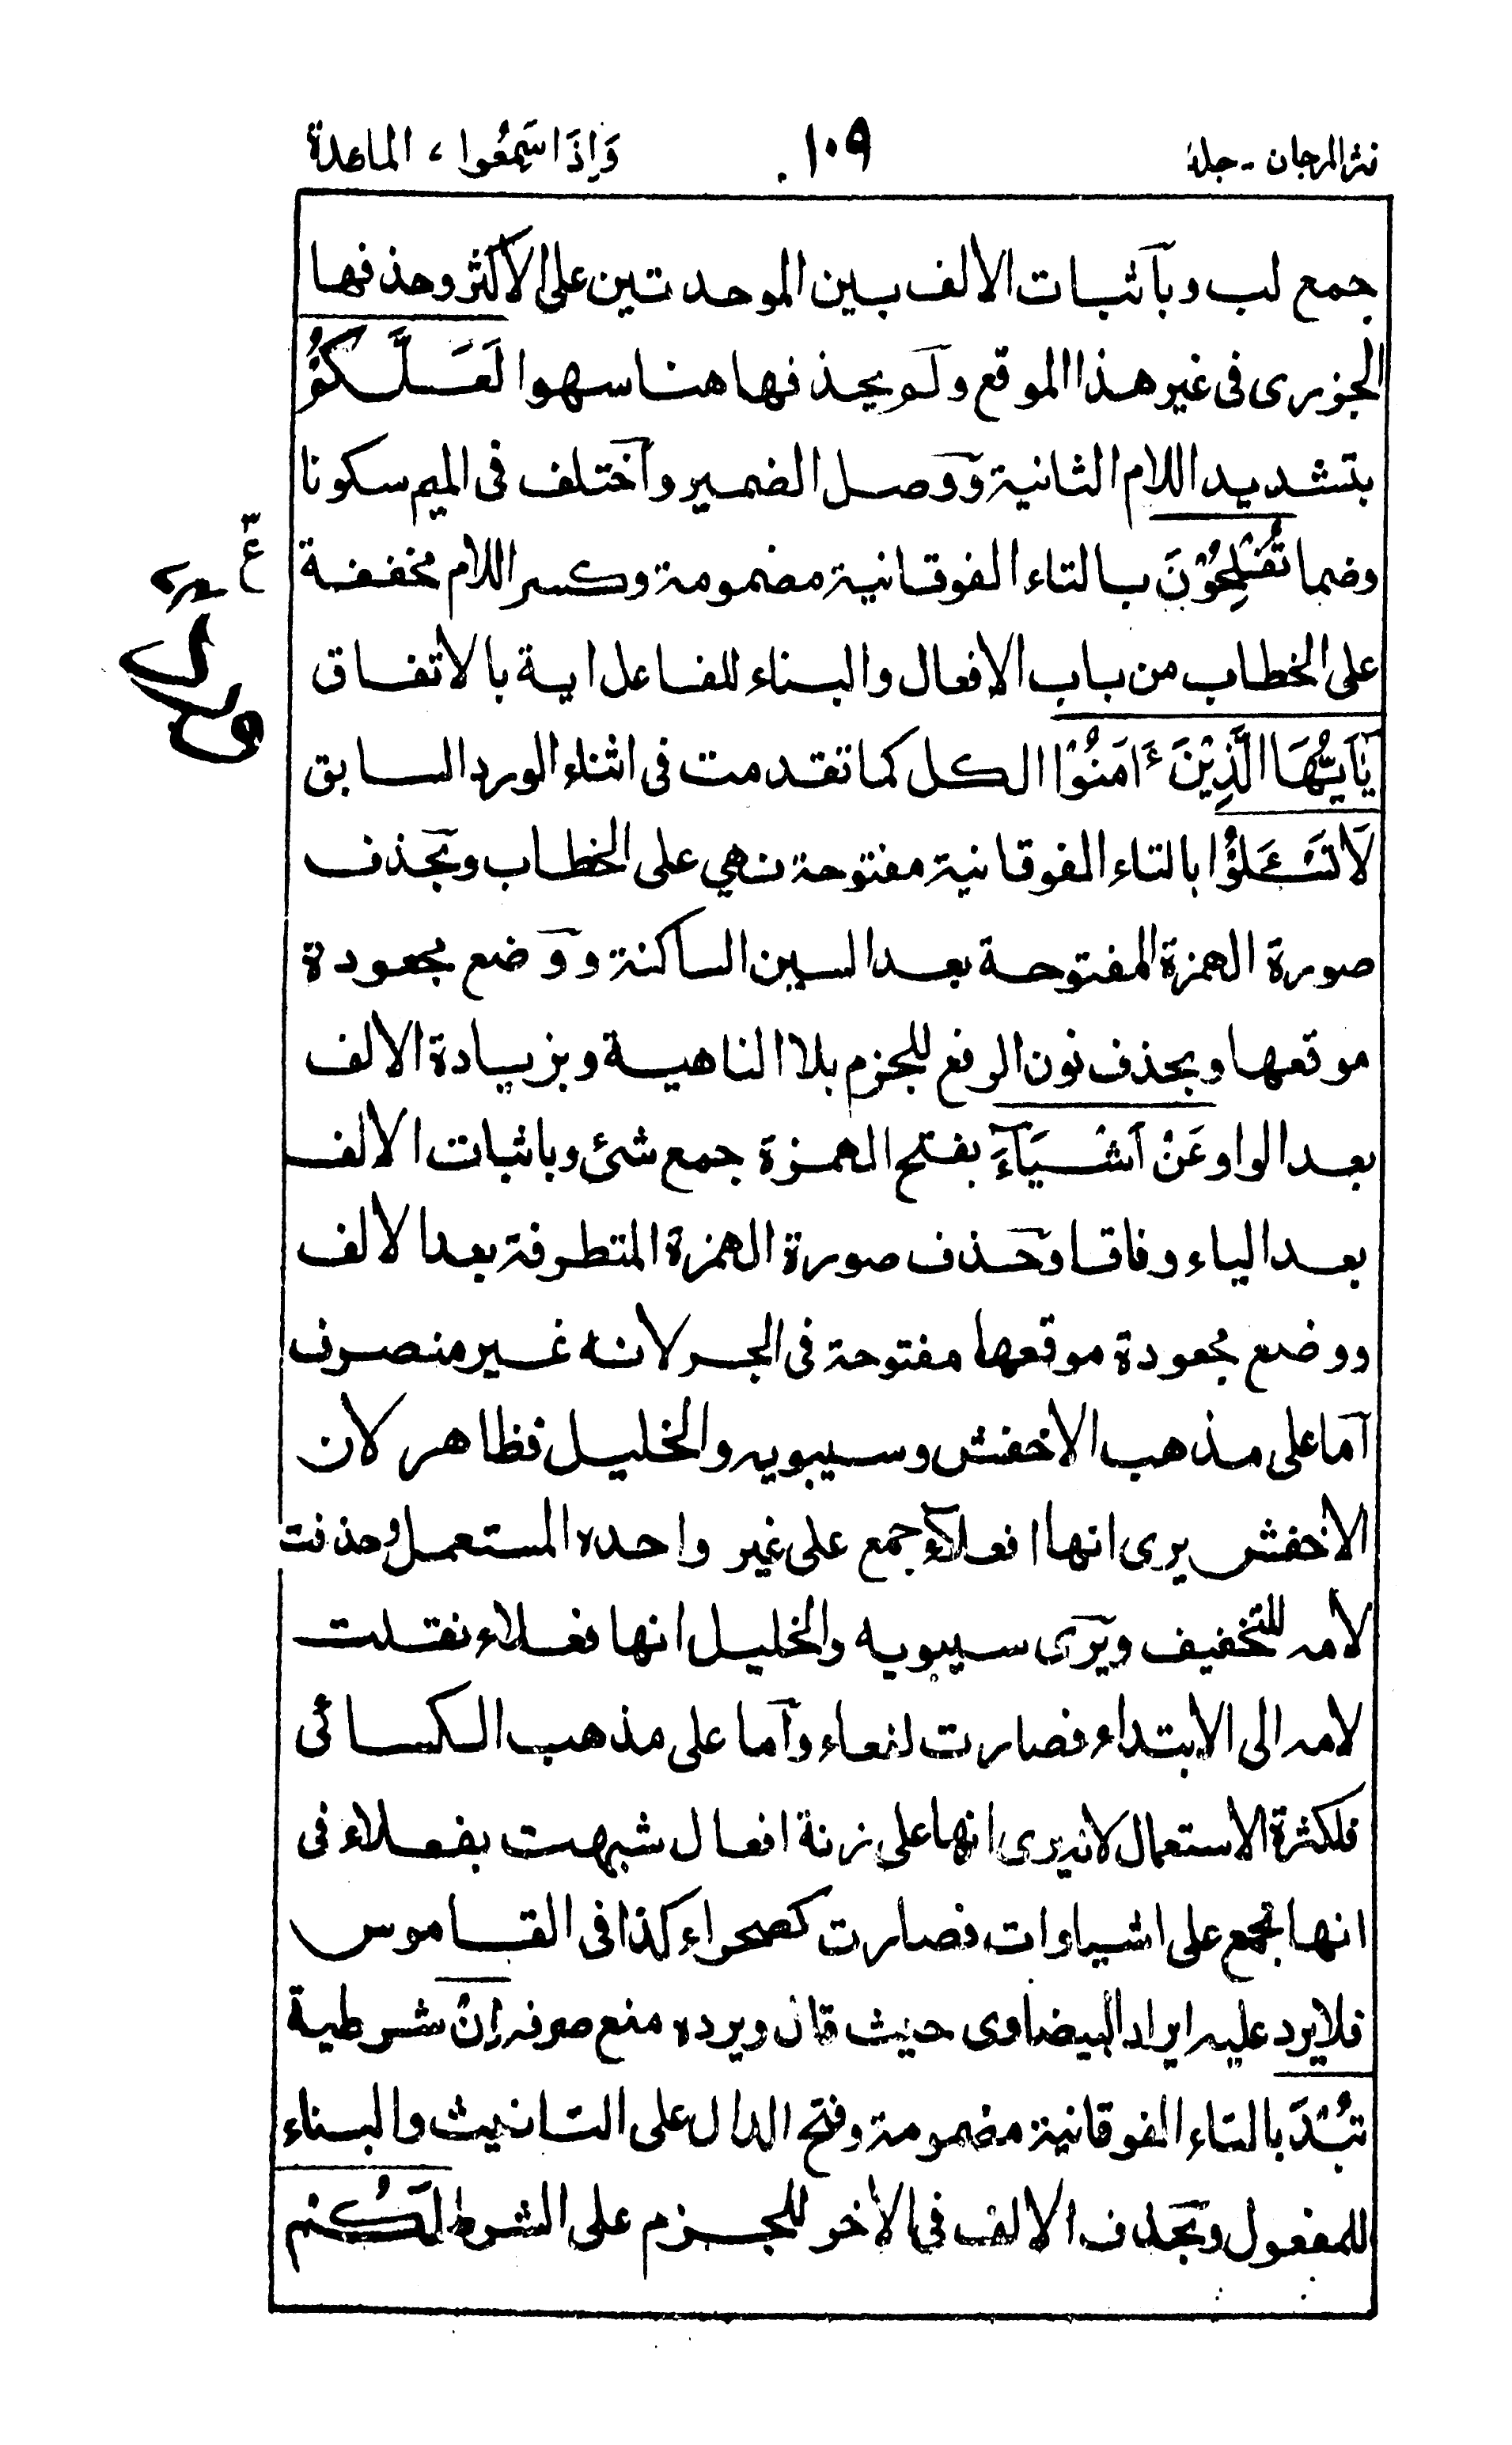 نثر المرجان - جلد
١٠٩
وَاِذَا سَمِعُوا ، المائدة
جمع لب وبآثبات الالف بين الموحدتين على الاكثر وحذفها
الجزرى فى غير هذا الموقع ولم يحذفها هنا سهوا لَعَلَّكُمْ
بتشديد اللام الثانية ووصل الضمير وآختلف فى الميم سكونا
وضما تُفْلِحُوْنَ بالتاء الفوقانية مضمومة وكسر اللام مخففة
على الخطاب من باب الافعال والبناء للفاعل اية بالاتفاق
يٰٓاَيُّهَا الَّذِيْنَ ءَامَنُوْا الكل كما تقدمت فى اثناء الورد السابق
لَا تَسْـَٔلُوْا بالتاء الفوقانية مفتوحة نهي على الخطاب وبحذف
صورة الهمزة المفتوحة بعد السين الساكنة ووضع مجعودة
موقعها وبحذف نون الرفع للجزم بلا الناهية وبزيادة الالف
بعد الواو عَنْ اَشْيَآءَ بفتح الهمزة جمع شئ وباثبات الالف
بعد الياء وفاقا وحذف صورة الهمزة المتطرفة بعد الالف
ووضع مجعودة موقعها مفتوحة فى الجر لانه غير منصرف
آما على مذهب الاخفش وسيبويه والخليل فظاهر لان
الاخفش يرى انها افعلاء جمع على غير واحده المستعمل وحذفت
لامه للتخفيف ويرى سيبويه والخليل انها فعلاء نقلت
لامه الى الابتداء فصارت لفعاء وآما على مذهب الكسائى
فلكثرة الاستعمال لانه يرى انها على زنة افعال شبهت بفعلاء فى
انها تجمع على اشياوات فصارت كصحراء كذا فى القاموس
فلا يرد عليه ايراد البيضاوى حيث قال ويرده منع صرفه اِنْ شرطية
تُبْدَ بالتاء الفوقانية مضمومة وفتح الدال على التانيث والبناء
للمفعول وبحذف الالف فى الاخر للجزم على الشرط لَكُمْ
ع